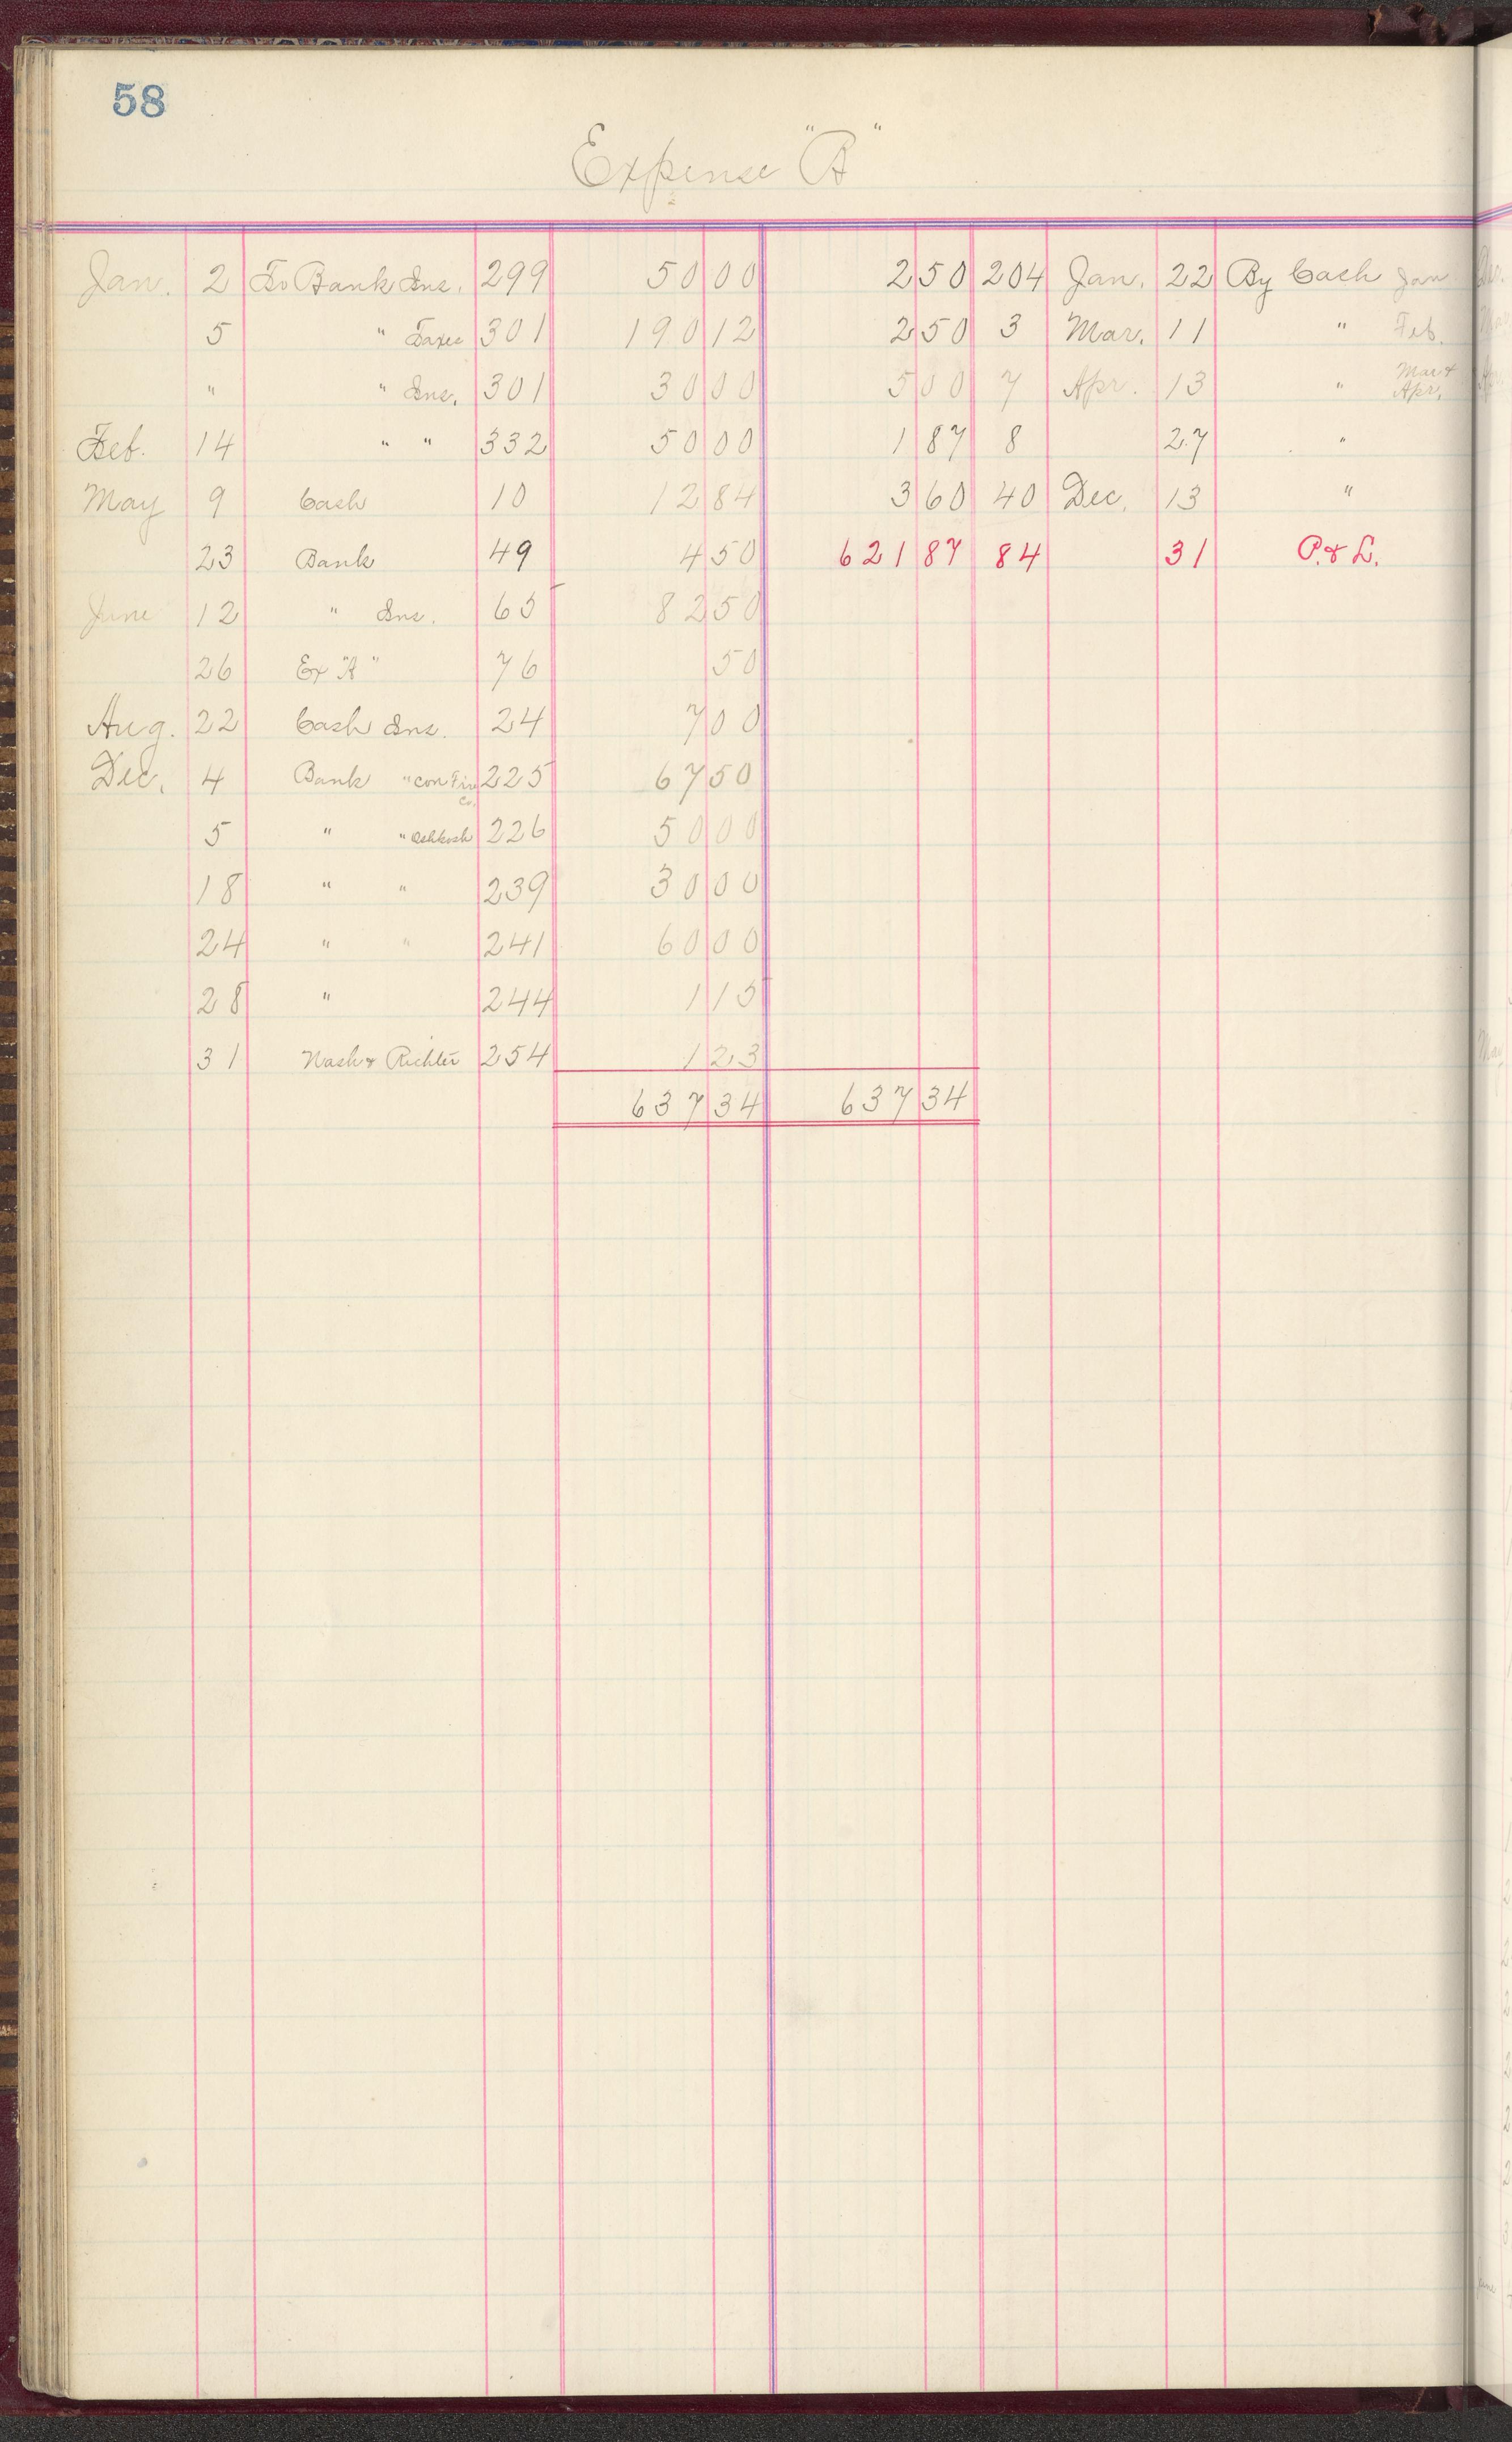 58
Expense "B"
Jan. 2 To Bank Ins. 299 50 00 2 50 204 Jan. 22 By Cash Jan
5 " Taxes 301 190 12 2 50 3 Mar. 11 " Feb.
" " Ins. 301 30 00 5 00 7 Apr. 13 " Mar & Apr.
Feb. 14 " " 332 50 00 1 87 8 27 "
May 9 Cash 10 12 84 3 60 40 Dec. 13 "
23 Bank 49 4 50 621 87 84 31 P. & L.
June 12 " Ins. 65 82 50
26 Ex "A" 76 50
Aug. 22 Cash Ins. 24 7 00
Dec. 4 Bank " Con Fire Co. 225 67 50
5 " " Oshkosh 226 50 00
18 " " 239 30 00
24 " " 241 60 00
28 " 244 1 15
31 Nash & Richter 254 1 23
637 34 637 34